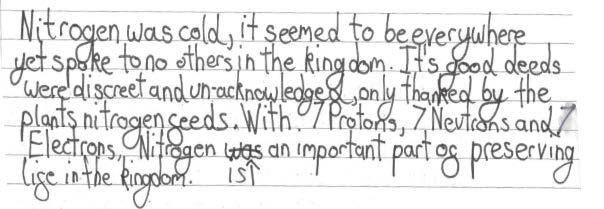 Nitrogen was cold, it seemed to be everywhere
yet spoke to no others in the kingdom. It's good deeds
were discreet and un-acknowledged, only thanked by the
plants nitrogen feeds. With 7 Protons, 7 Neutrons and 7
Electrons, Nitrogen was an important part of preserving
life in the kingdom. is↑